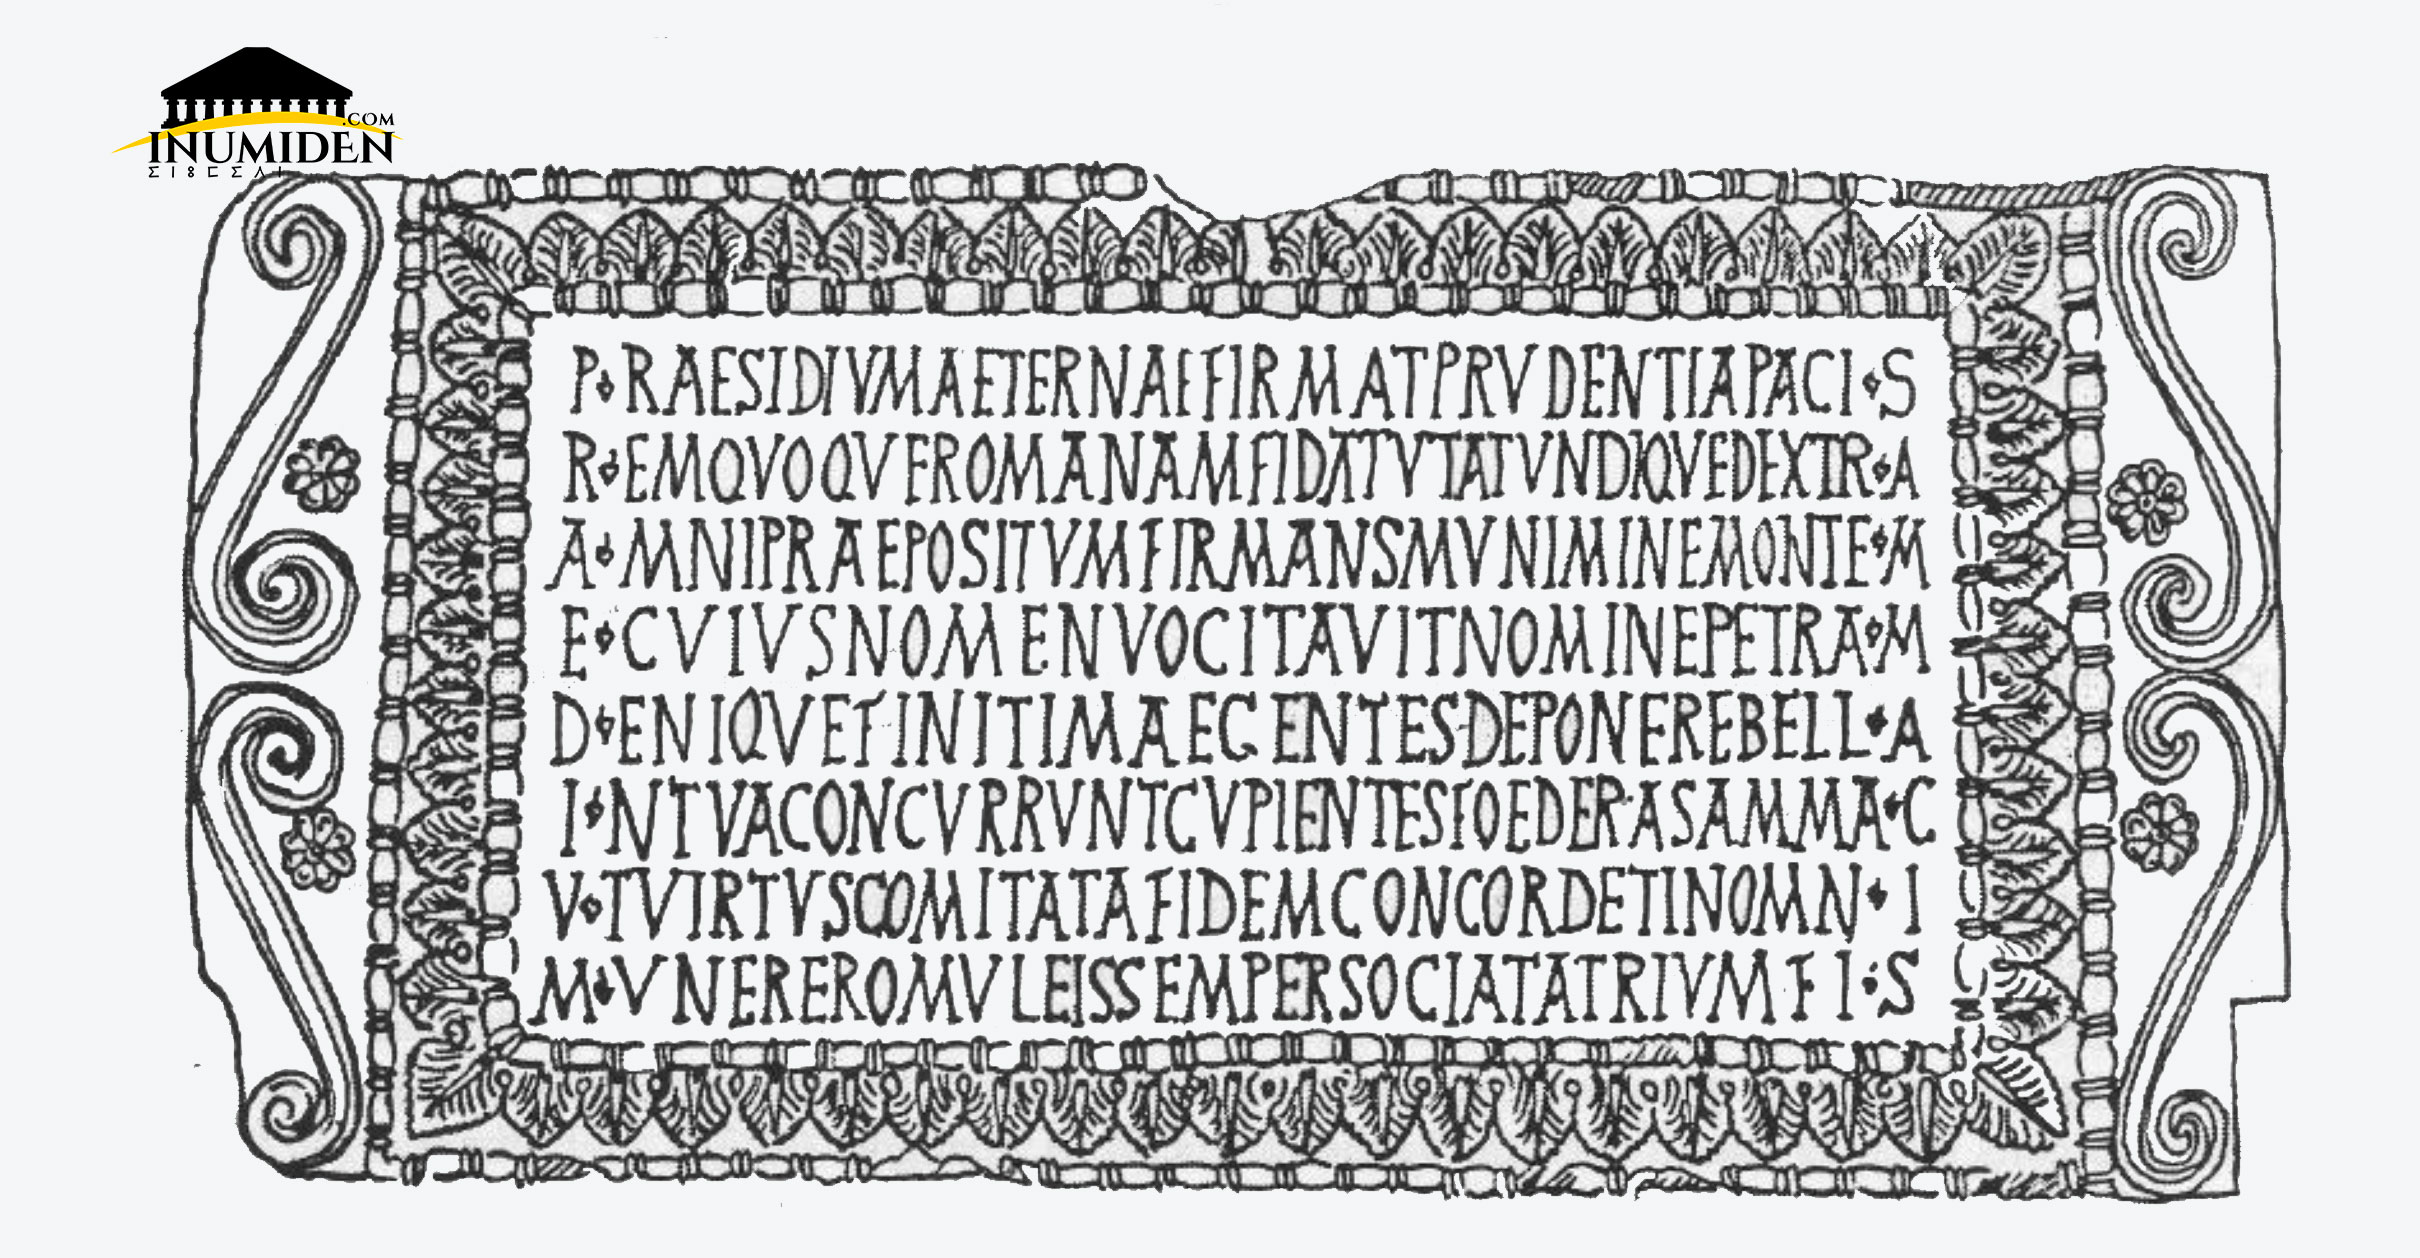 .COM
INUMIDEN
ⵉⵏⵓⵎⵉⴷⵏ
P RAESIDIVMAETERNAEFIRMATPRVDENTIAPACI S
R EMQVOQVEROMANAMFIDATVTATVNDIQVEDEXTR A
A MNIPRAEPOSITVMFIRMANSMVNIMINEMONTE M
E CVIVSNOMENVOCITAVITNOMINEPETRA M
D ENIQVEFINITIMAEGENTESDEPONEREBELL A
I NTVACONCVRRVNTCVPIENTESFOEDERASAMMA C
V TVIRTVSCOMITATAFIDEMCONCORDETINOMN I
M VNEREROMVLEISSEMPERSOCIATATRIVMFI S